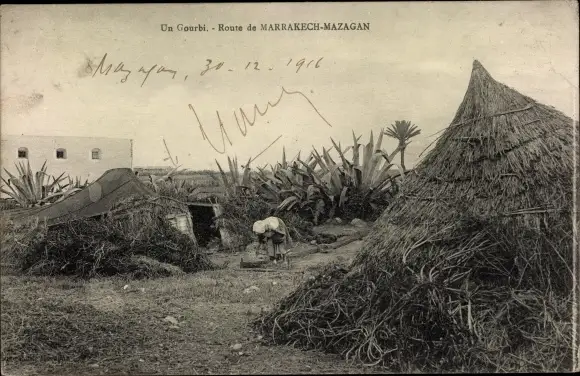 Un Gourbi. - Route de MARRAKECH-MAZAGAN
Mazagan, 30.12.1916